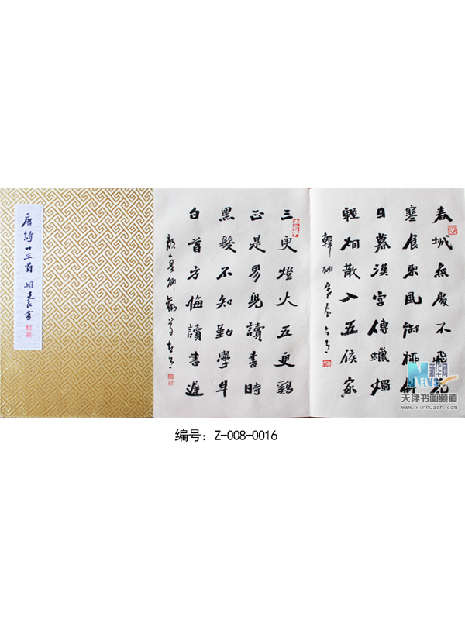 三更燈火五更雞
正是男兒讀書時
黑髮不知勤學早
白首方悔讀書遲
春城無處不飛花
寒食東風御柳斜
日暮漢宮傳蠟燭
輕烟散入五侯家
天津书画频道
编号：Z-008-0016